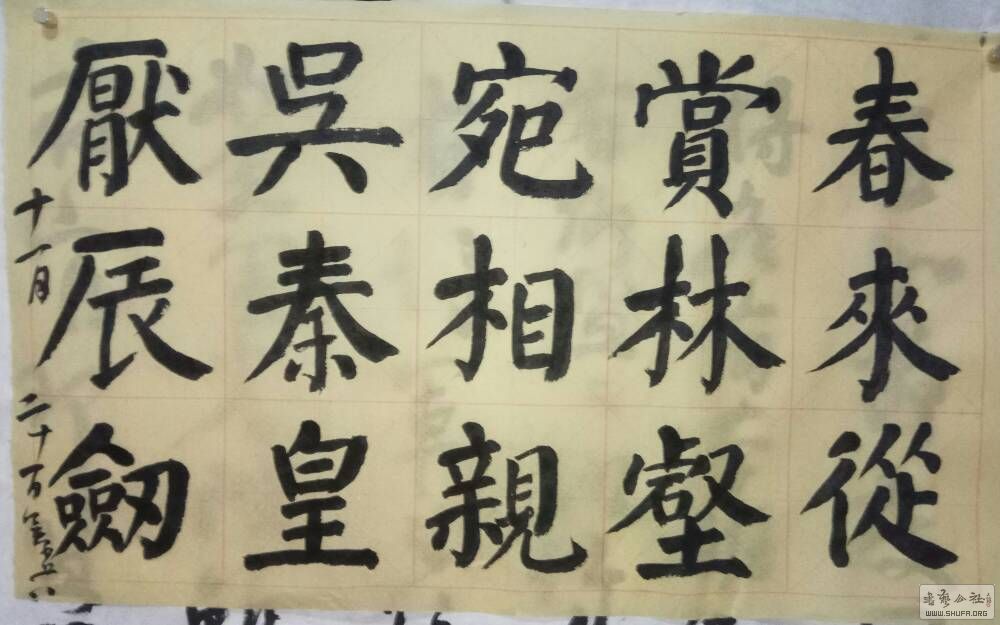 春來從
賞林壑
宛相親
吳秦皇
厭辰劔
十一月 二十
書藝公社
WWW.SHUFA.ORG